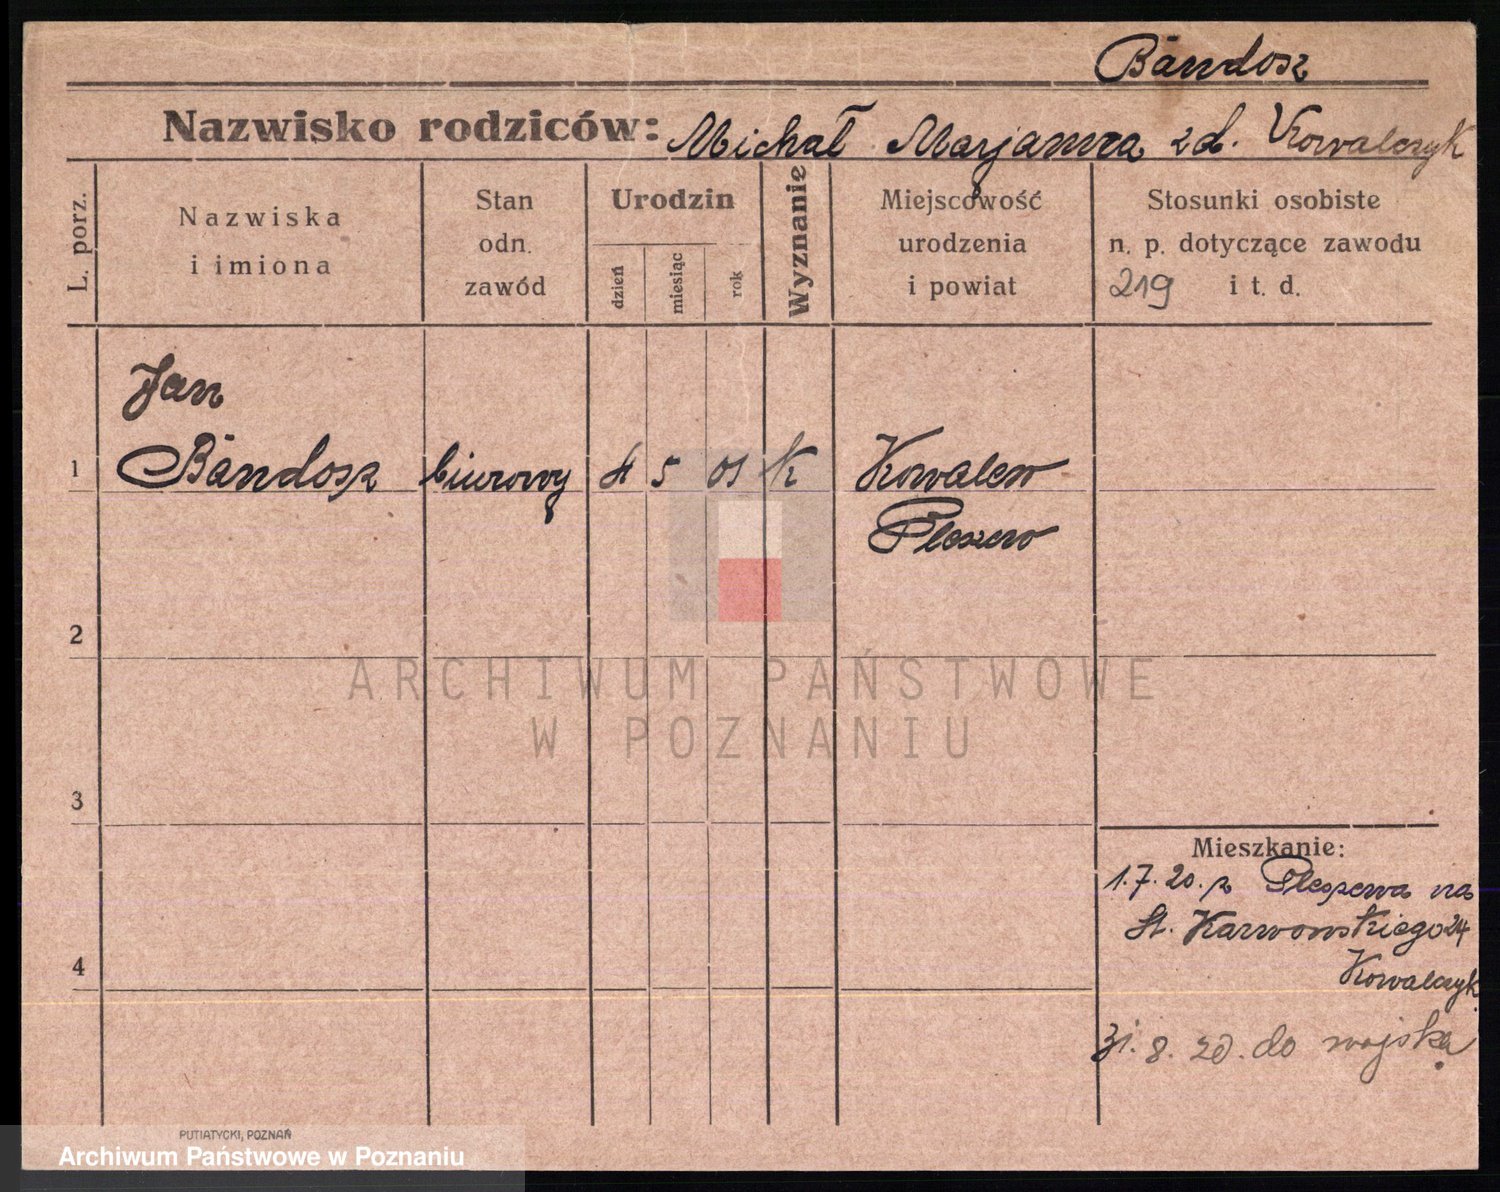 Bandosz
Nazwisko rodziców: Michał Marjanna zd. Kowalczyk
L. porz.
Nazwiska
i imiona
Stan
odn.
zawód
Urodzin
dzień
miesiąc
rok
Wyznanie
Miejscowość
urodzenia
i powiat
Stosunki osobiste
n. p. dotyczące zawodu
219 i t. d.
Jan
1 Bandosz biurowy 4 5 01 k Kowalew
Pleszew
2
3
4
ARCHIWUM PAŃSTWOWE
W POZNANIU
Mieszkanie:
1.7.20. z Pleszewa na
St. Karwowskiego 24
Kowalczyk
31.8.20. do wojska
PUTIATYCKI, POZNAŃ
Archiwum Państwowe w Poznaniu